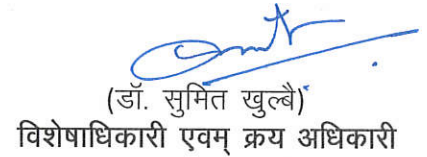 (डॉ. सुमित खुल्बै)
विशेषाधिकारी एवम् क्रय अधिकारी